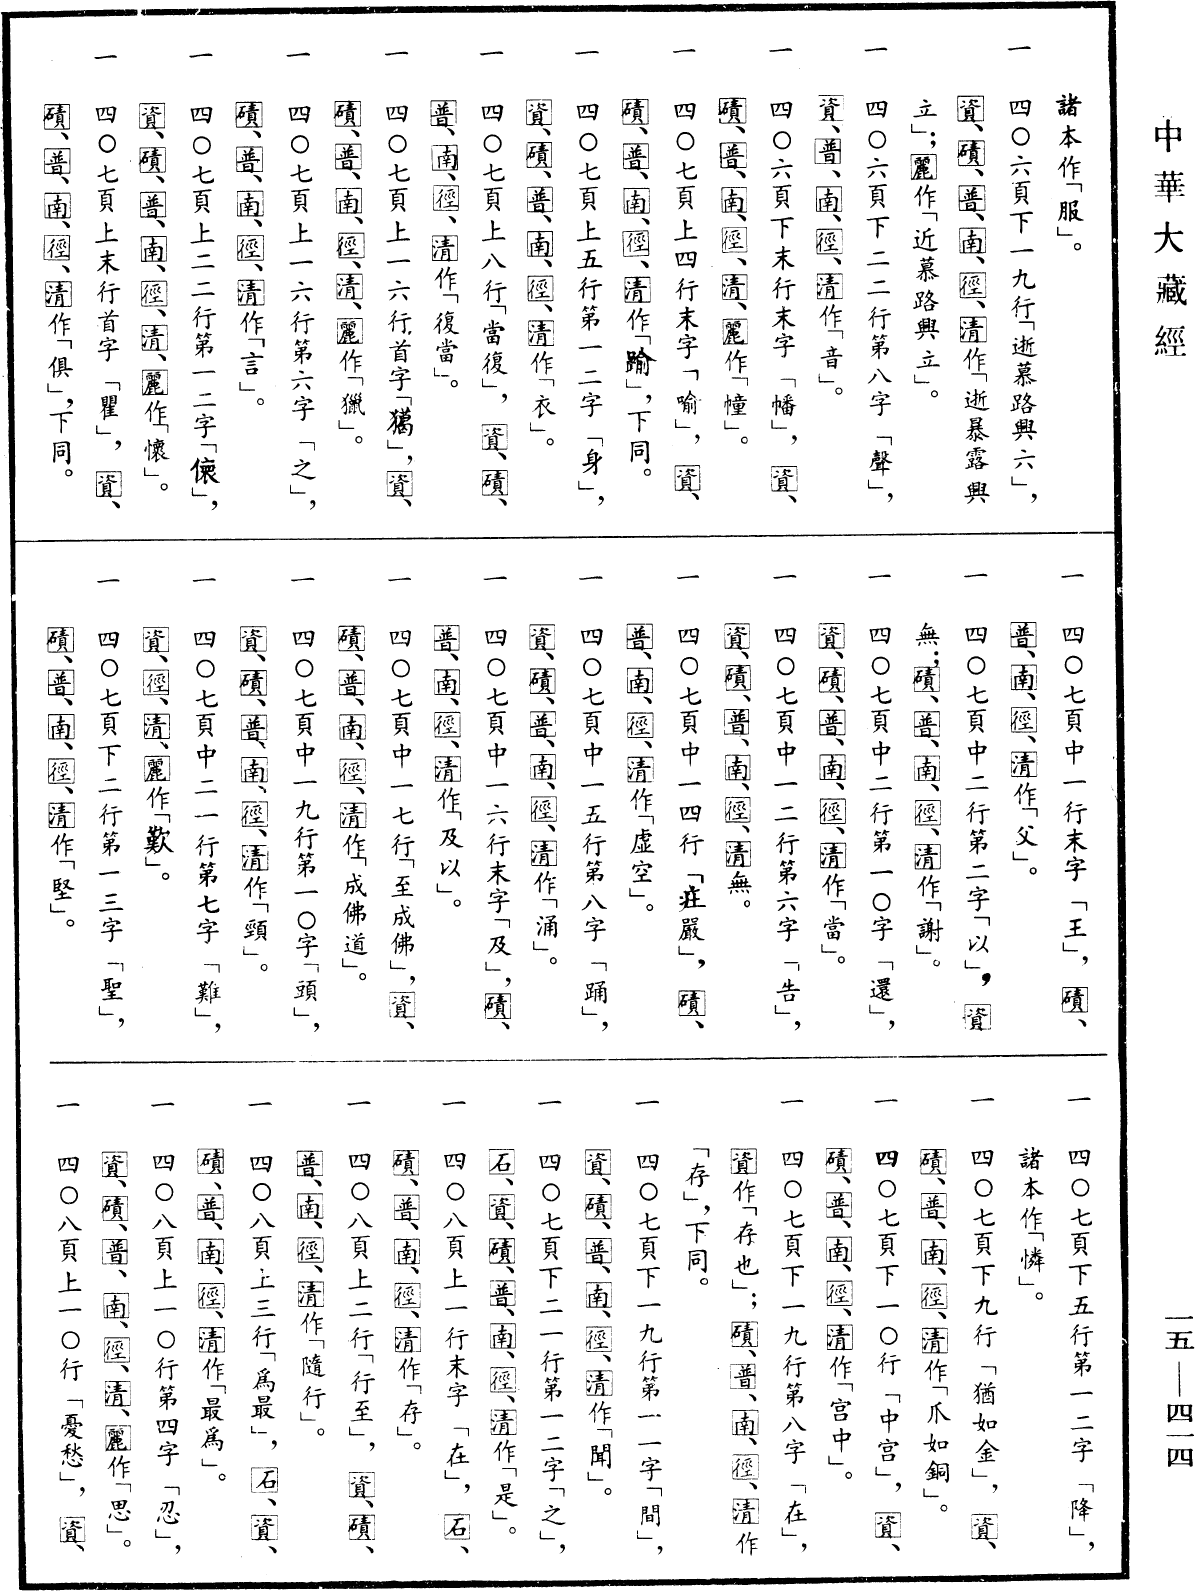 中華大藏經
諸本作「服」。
一　四〇六頁下一九行「逝慕路興六」，
資、磧、普、南、徑、清作「逝暴露興
立」；麗作「近慕路興立」。
一　四〇六頁下二二行第八字「聲」，
資、普、南、徑、清作「音」。
一　四〇六頁下末行末字「幡」，資、
磧、普、南、徑、清、麗作「幢」。
一　四〇七頁上四行末字「喻」，資、
磧、普、南、徑、清作「踰」，下同。
一　四〇七頁上五行第一二字「身」，
資、磧、普、南、徑、清作「衣」。
一　四〇七頁上八行「當復」，資、磧、
普、南、徑、清作「復當」。
一　四〇七頁上一六行首字「獦」，資、
磧、普、南、徑、清、麗作「獵」。
一　四〇七頁上一六行第六字「之」，
磧、普、南、徑、清作「言」。
一　四〇七頁上二二行第一二字「懷」，
資、磧、普、南、徑、清、麗作「懷」。
一　四〇七頁上末行首字「瞿」，資、
磧、普、南、徑、清作「俱」，下同。
一　四〇七頁中一行末字「王」，磧、
普、南、徑、清作「父」。
一　四〇七頁中二行第二字「以」，資
無；磧、普、南、徑、清作「謝」。
一　四〇七頁中二行第一〇字「還」，
資、磧、普、南、徑、清作「當」。
一　四〇七頁中一二行第六字「告」，
資、磧、普、南、徑、清無。
一　四〇七頁中一四行「莊嚴」，磧、
普、南、徑、清作「虛空」。
一　四〇七頁中一五行第八字「踊」，
資、磧、普、南、徑、清作「涌」。
一　四〇七頁中一六行末字「及」，磧、
普、南、徑、清作「及以」。
一　四〇七頁中一七行「至成佛」，資、
磧、普、南、徑、清作「成佛道」。
一　四〇七頁中一九行第一〇字「頭」，
資、磧、普、南、徑、清作「頸」。
一　四〇七頁中二一行第七字「難」，
資、徑、清、麗作「歎」。
一　四〇七頁下二行第一三字「聖」，
磧、普、南、徑、清作「堅」。
一　四〇七頁下五行第一二字「降」，
諸本作「憐」。
一　四〇七頁下九行「猶如金」，資、
磧、普、南、徑、清作「爪如銅」。
一　四〇七頁下一〇行「中宮」，資、
磧、普、南、徑、清作「宮中」。
一　四〇七頁下一九行第八字「在」，
資作「存也」；磧、普、南、徑、清作
「存」，下同。
一　四〇七頁下一九行第一一字「間」，
資、磧、普、南、徑、清作「聞」。
一　四〇七頁下二一行第一二字「之」，
石、資、磧、普、南、徑、清作「是」。
一　四〇八頁上一行末字「在」，石、
磧、普、南、徑、清作「存」。
一　四〇八頁上二行「行至」，資、磧、
普、南、徑、清作「隨行」。
一　四〇八頁上三行「為最」，石、資、
磧、普、南、徑、清作「最為」。
一　四〇八頁上一〇行第四字「忍」，
資、磧、普、南、徑、清、麗作「思」。
一　四〇八頁上一〇行「憂愁」，資、
一五—四一四